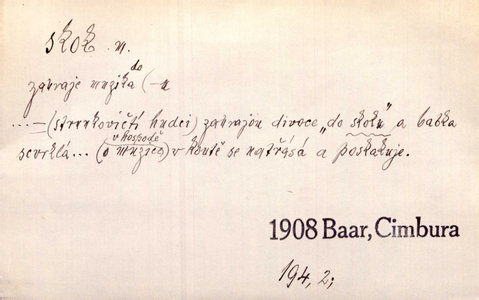 skok m.
zahraje muzika do (-u
...-(strunkovičtí hudci) zahrajou divoce „do skoku" a babka
v hospodě
scvrklá... (o muzice) v koutě se natřásá a poskakuje.
1908 Baar, Cimbura
194, 2;